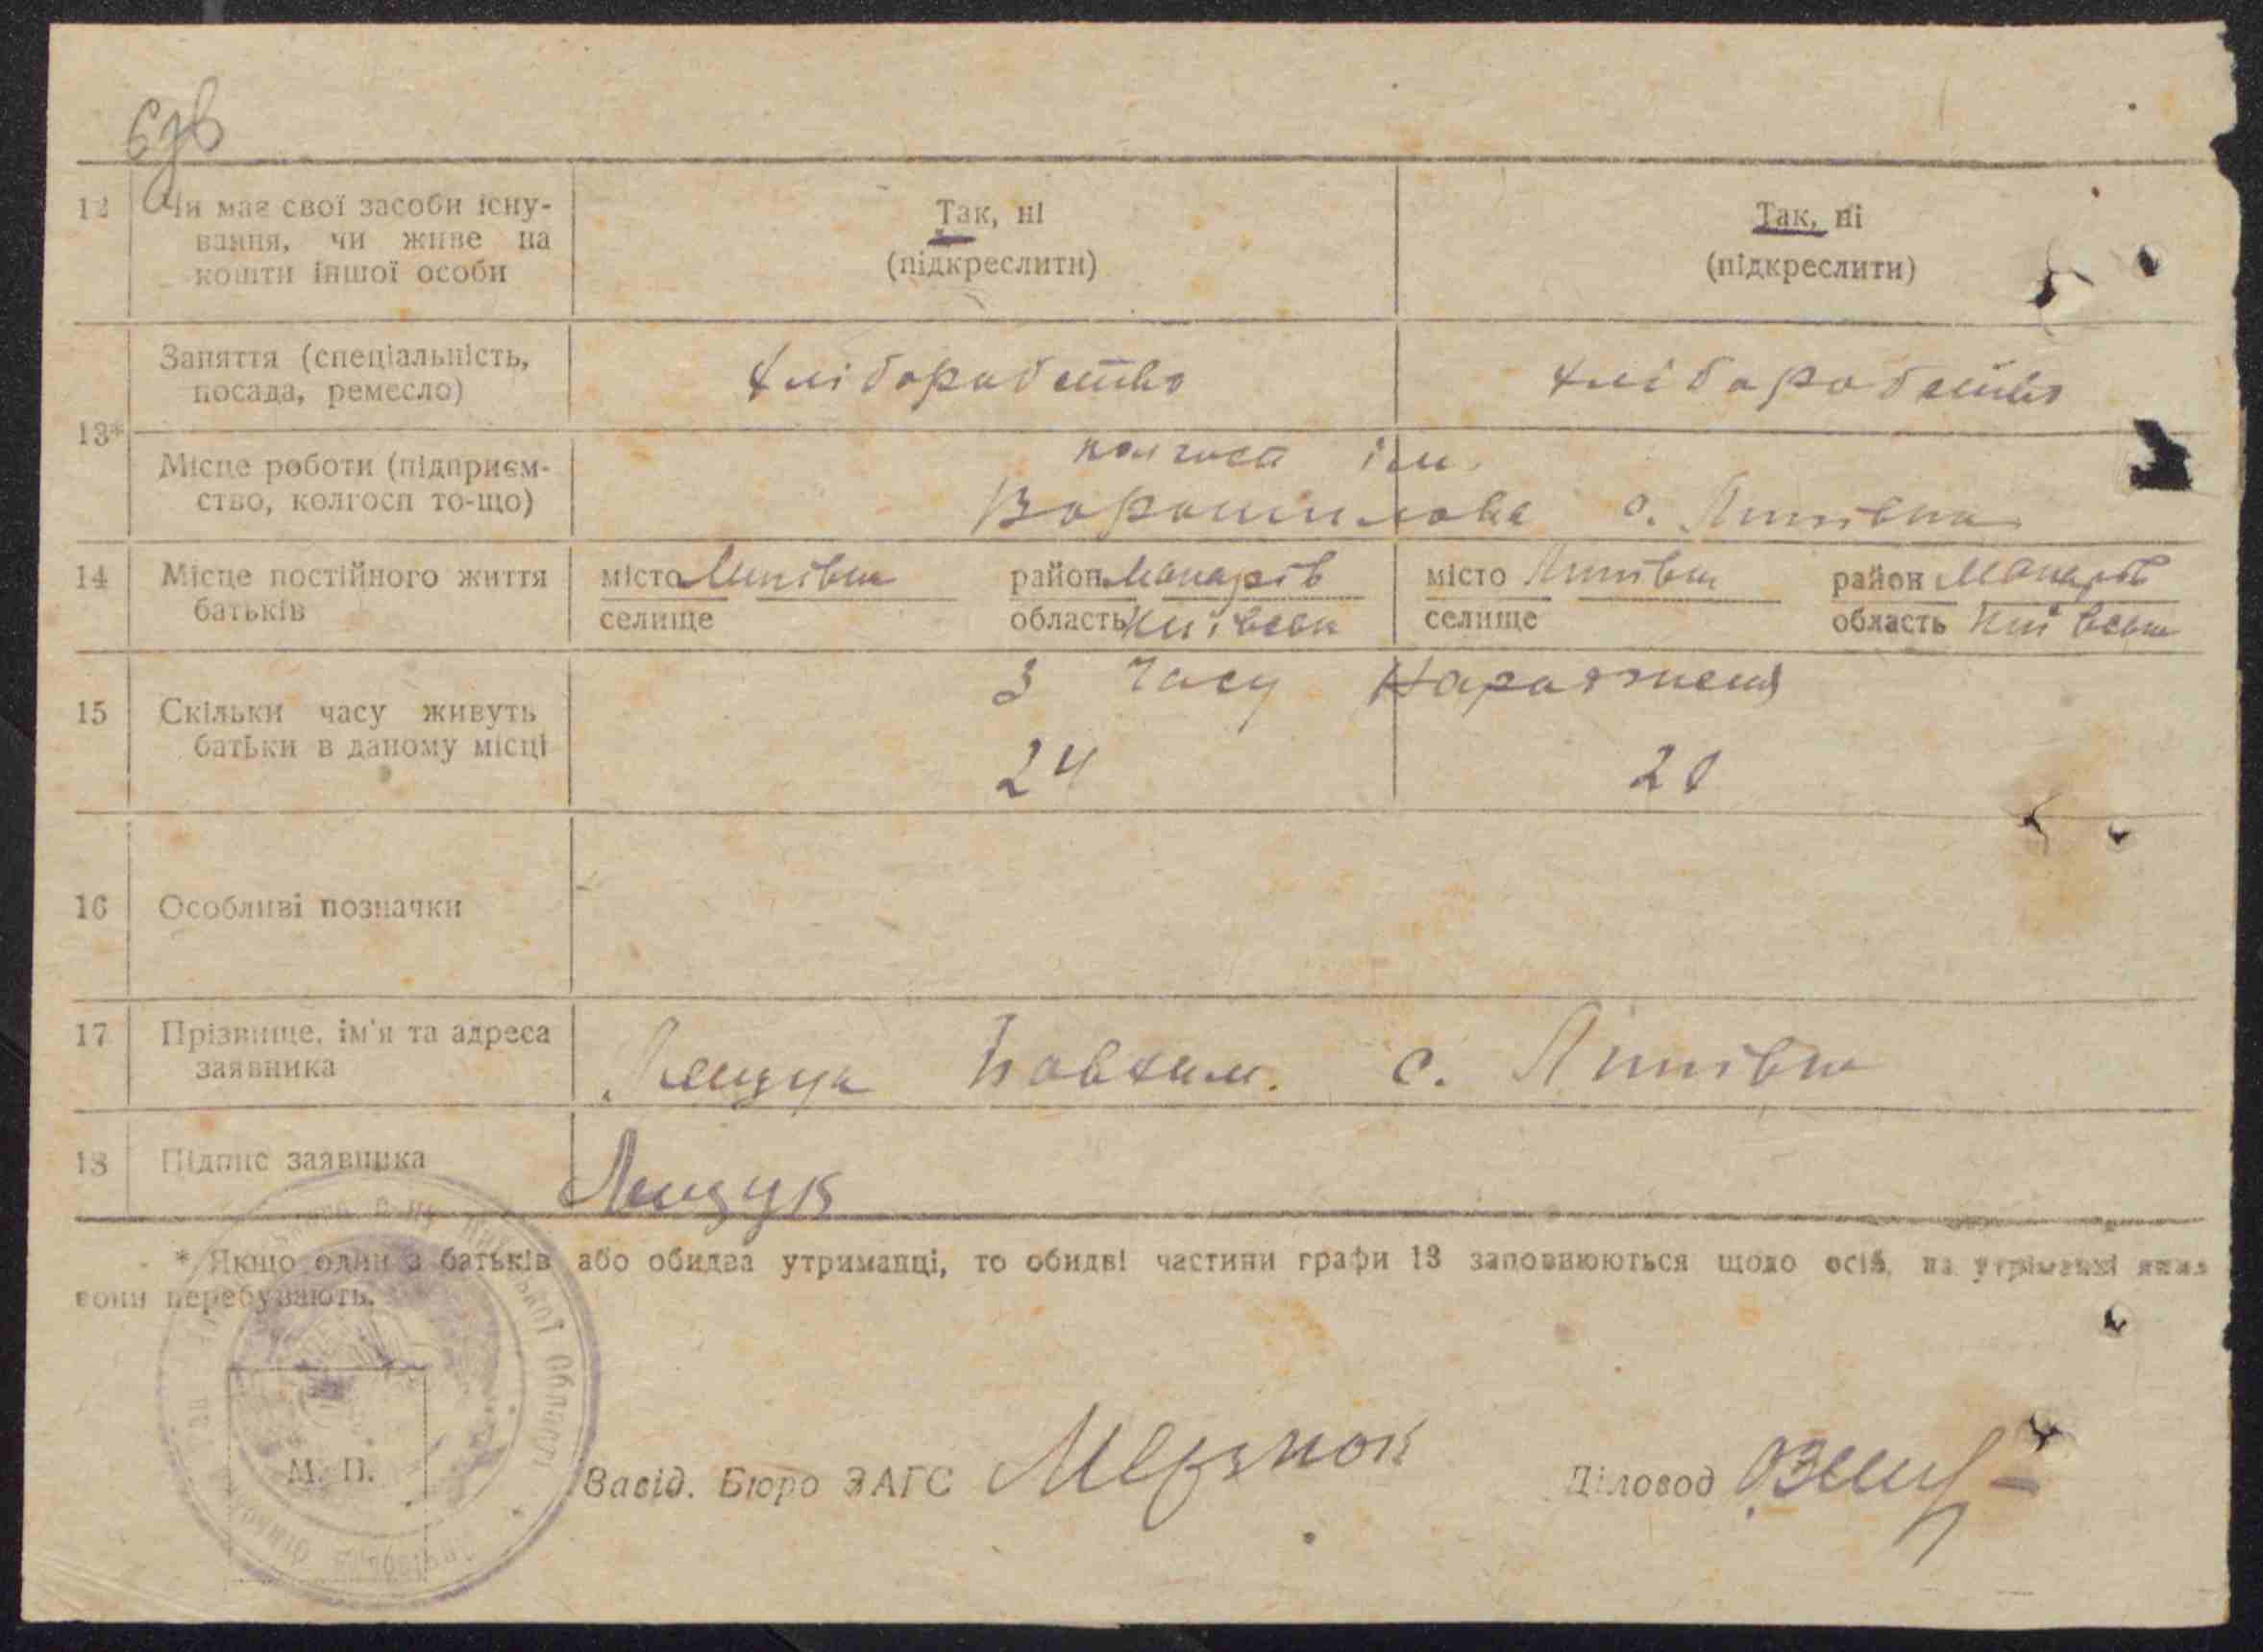 12 Чи має свої засоби існу-
вання, чи живе на
кошти іншої особи
Так, ні
(підкреслити)
Так, ні
(підкреслити)
13*
Заняття (спеціальність,
посада, ремесло)
хліборобство
хліборобство
Місце роботи (підприєм-
ство, колгосп то-що)
колгосп ім.
Ворошилова с. Липівка
14 Місце постійного життя
батьків
місто Липівка район Макарів
селище область Київськ
місто Липівка район Макарів
селище область Київська
15 Скільки часу живуть
батьки в даному місці
З часу Нарожження
24 20
16 Особливі позначки
17 Прізвище, ім'я та адреса
заявника
Лещук с. Липівка
18 Підпис заявника
Лещук
* Якщо один з батьків або обидва утриманці, то обидві частини графи 13 заповнюються щодо осіб, на утриманні яких
вони перебувають.
М. П.
Завід. Бюро ЗАГС
Діловод